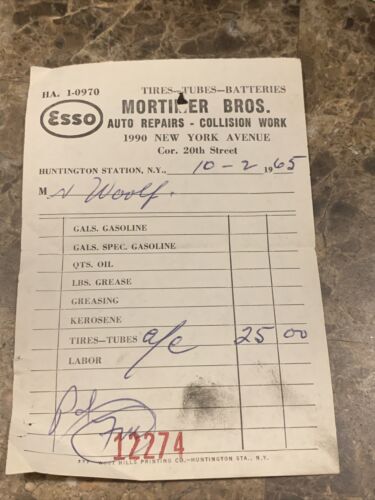 HA. 1-0970 TIRES—TUBES—BATTERIES
Esso MORTIMER BROS.
AUTO REPAIRS - COLLISION WORK
1990 NEW YORK AVENUE
Cor. 20th Street
HUNTINGTON STATION, N.Y., 10-2 1965
M Woolf.
GALS. GASOLINE
GALS. SPEC. GASOLINE
QTS. OIL
LBS. GREASE
GREASING
KEROSENE
TIRES—TUBES a/c 25 00
LABOR
Pd
12274
HILLS PRINTING CO.—HUNTINGTON STA., N.Y.